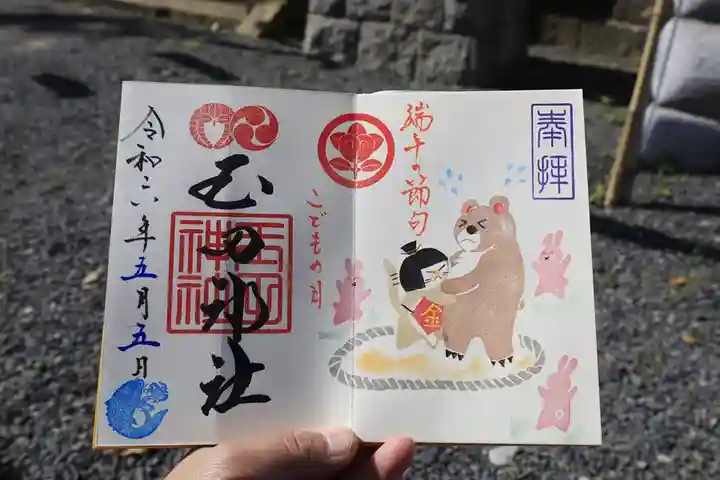 奉拝
端午の節句
金
こどもの日
玉田神社
玉田神社
令和六年五月五日